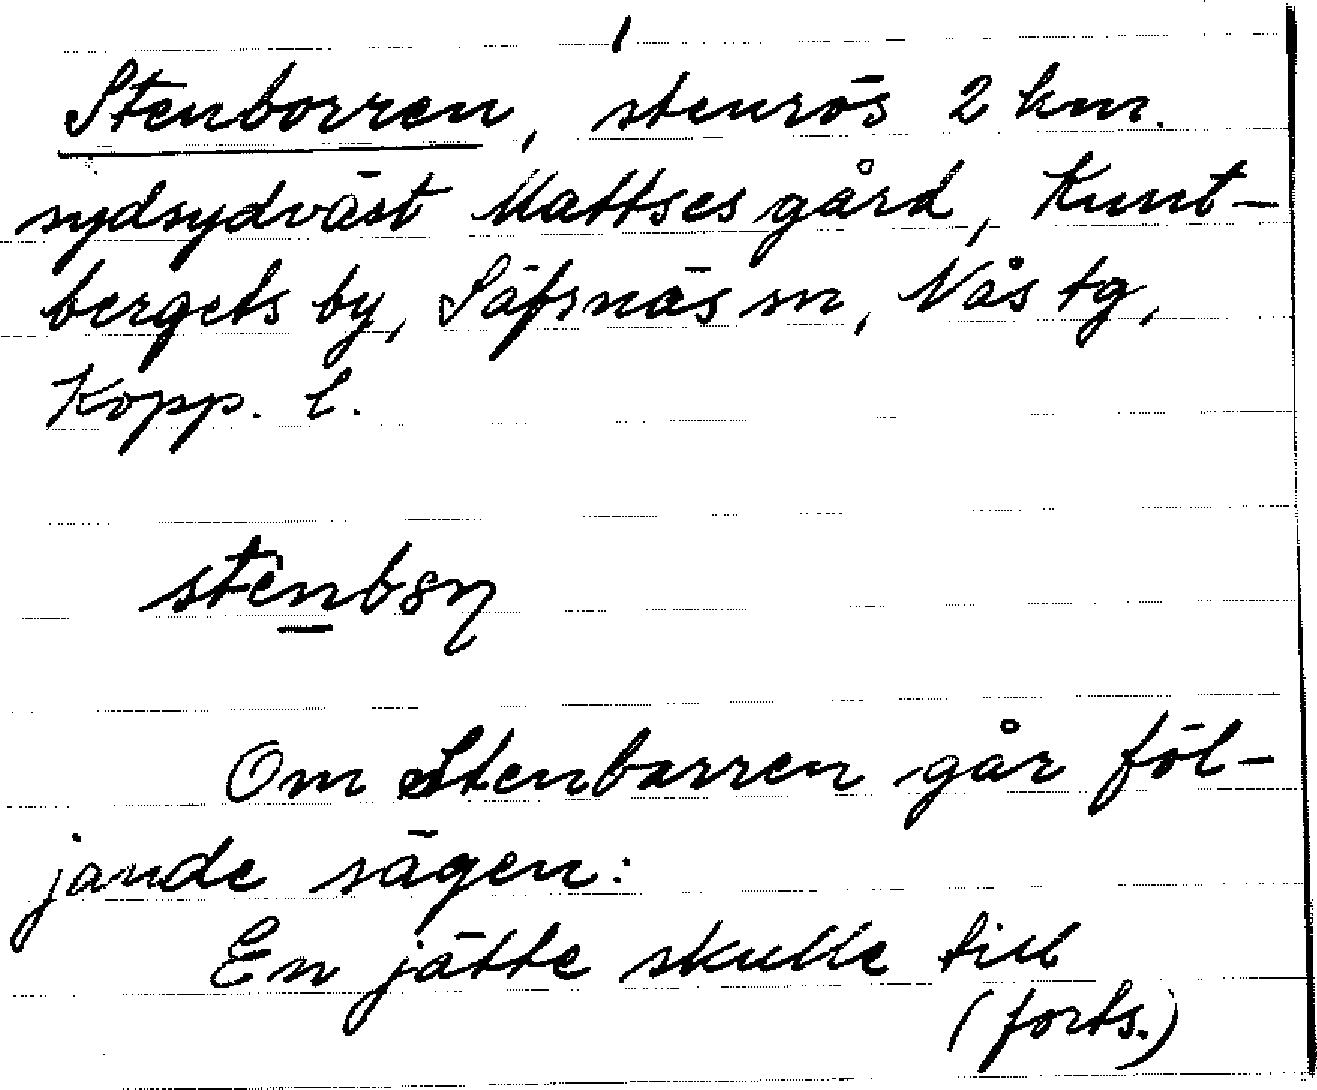 1
Stenborren, stenrös 2 km.
sydsydväst Mattses gård, Kunt-
bergets by, Säfsnäs sn, Nås tg,
Kopp. l.
Om Stenbarren går föl-
jande sägen:
En jätte skulle till
(forts.)